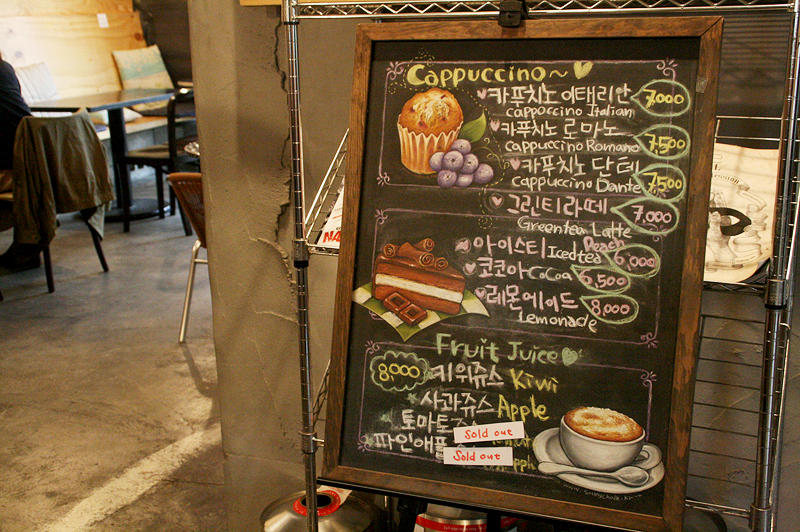 Cappuccino~
카푸치노 이태리안 7,000
cappoccino Italian
카푸치노 로마노 7,500
cappuccino Romano
카푸치노 단테 7,500
cappuccino Dante
그린티라떼 7,000
Greentea Latte
아이스티 Icedtea Peach 6,000
코코아 cocoa 6,500
레몬에이드 8,000
Lemonade
Fruit Juice
8,000 키위쥬스 Kiwi
사과쥬스 Apple
토마토
Sold out
파인애플
Sold out